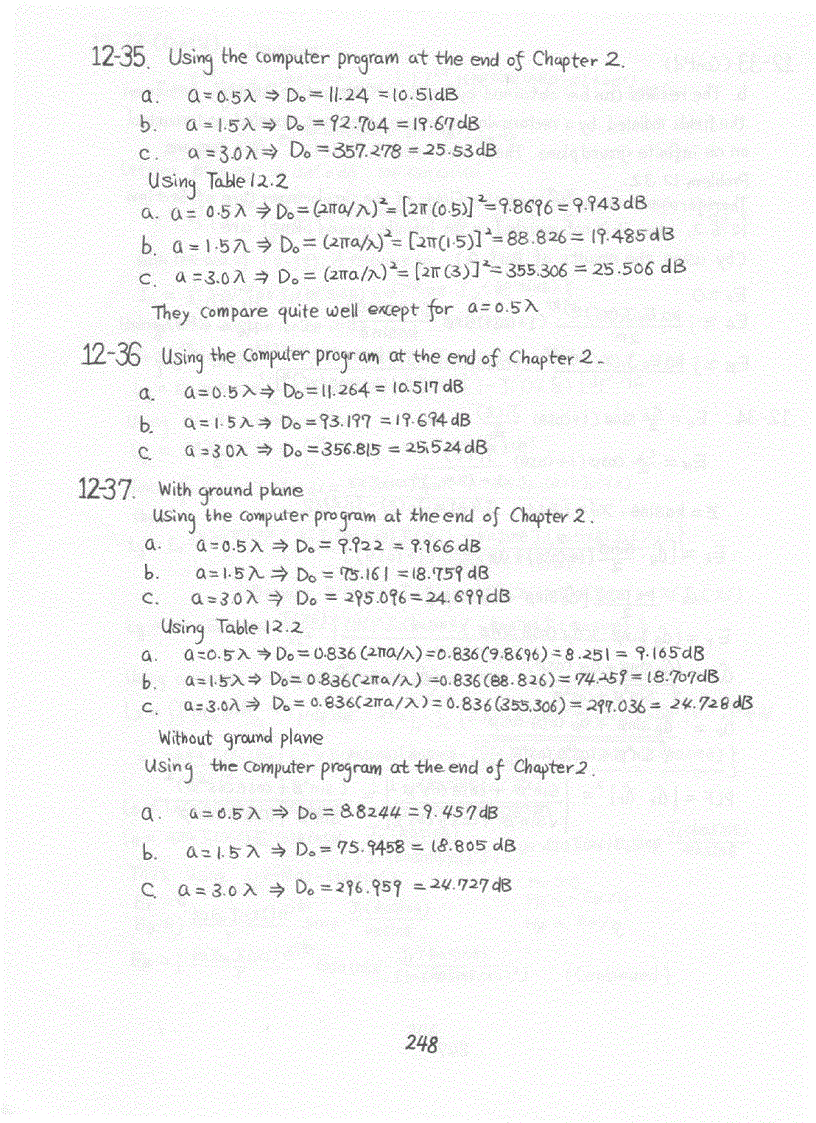 12-35. Using the computer program at the end of Chapter 2.
a. a = 0.5λ ⇒ D₀ = 11.24 = 10.51dB
b. a = 1.5λ ⇒ D₀ = 92.704 = 19.67dB
c. a = 3.0λ ⇒ D₀ = 357.278 = 25.53dB
Using Table 12.2
a. a = 0.5λ ⇒ D₀ = (2πa/λ)² = [2π(0.5)]² = 9.8696 = 9.943dB
b. a = 1.5λ ⇒ D₀ = (2πa/λ)² = [2π(1.5)]² = 88.826 = 19.485dB
c. a = 3.0λ ⇒ D₀ = (2πa/λ)² = [2π(3)]² = 355.306 = 25.506 dB
They compare quite well except for a = 0.5λ
12-36 Using the Computer program at the end of Chapter 2.
a. a = 0.5λ ⇒ D₀ = 11.264 = 10.517 dB
b. a = 1.5λ ⇒ D₀ = 93.197 = 19.694 dB
c. a = 3.0λ ⇒ D₀ = 356.815 = 25.524dB
12-37. With ground plane
Using the computer program at the end of Chapter 2.
a. a = 0.5λ ⇒ D₀ = 9.922 = 9.966dB
b. a = 1.5λ ⇒ D₀ = 75.161 = 18.759 dB
c. a = 3.0λ ⇒ D₀ = 295.096 = 24.699dB
Using Table 12.2
a. a = 0.5λ ⇒ D₀ = 0.836 (2πa/λ) = 0.836(9.8696) = 8.251 = 9.165dB
b. a = 1.5λ ⇒ D₀ = 0.836(2πa/λ) = 0.836(88.826) = 74.259 = 18.707dB
c. a = 3.0λ ⇒ D₀ = 0.836(2πa/λ) = 0.836(355.306) = 297.036 = 24.728dB
Without ground plane
Using the Computer program at the end of Chapter 2.
a. a = 0.5λ ⇒ D₀ = 8.8244 = 9.457dB
b. a = 1.5λ ⇒ D₀ = 75.9458 = 18.805 dB
c. a = 3.0λ ⇒ D₀ = 296.959 = 24.727dB
248